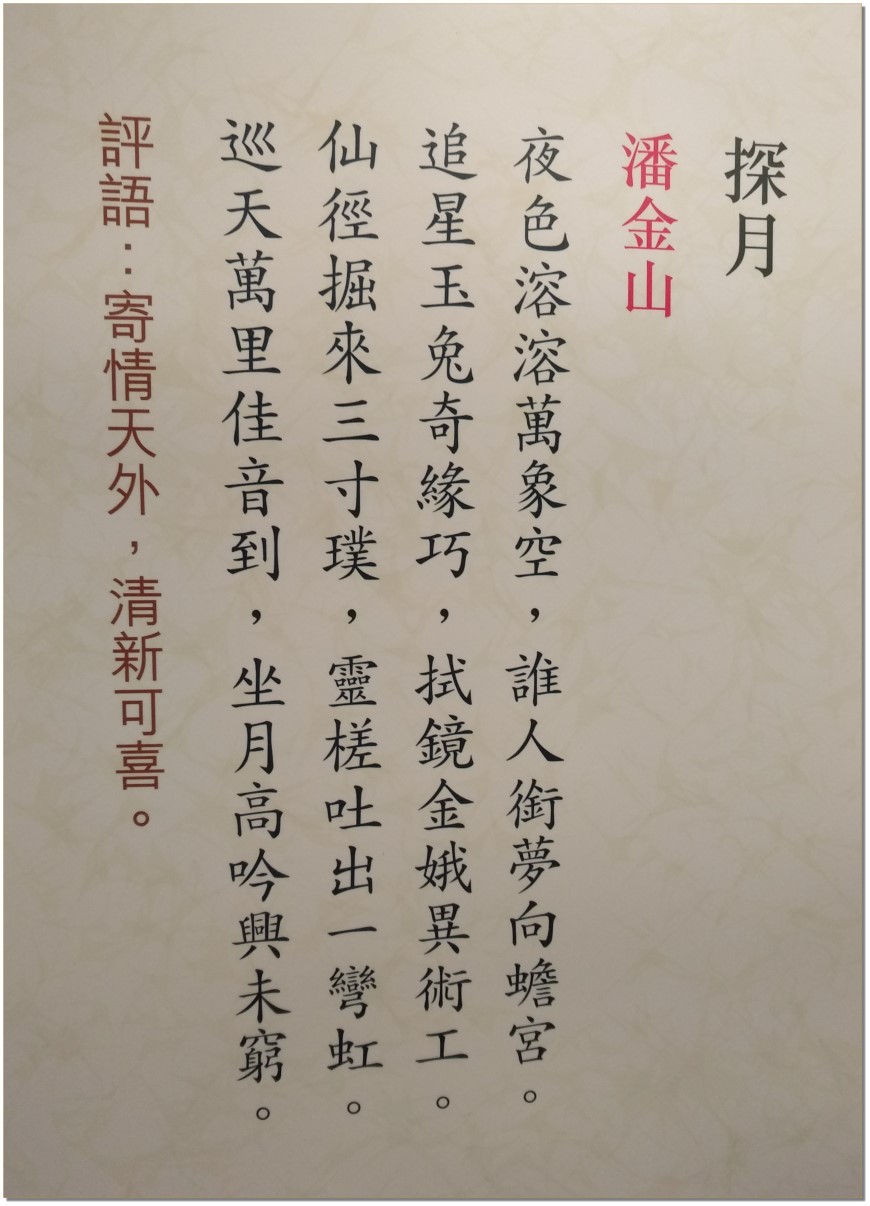 探月
潘金山
夜色溶溶萬象空，誰人銜夢向蟾宮。
追星玉兔奇緣巧，拭鏡金娥異術工。
仙徑掘來三寸璞，靈槎吐出一彎虹。
巡天萬里佳音到，坐月高吟興未窮。
評語：寄情天外，清新可喜。